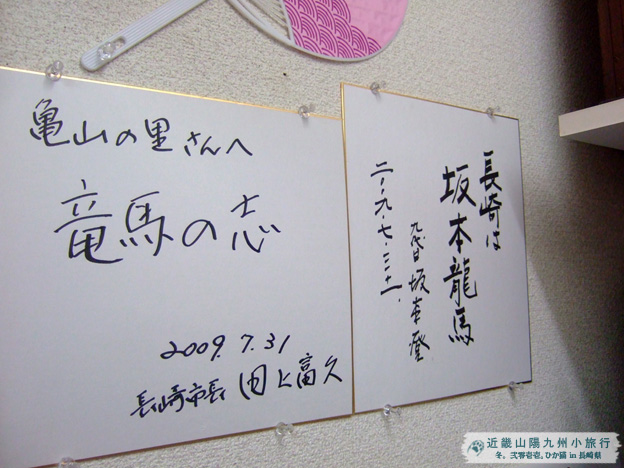 亀山の里さんへ
竜馬の志
2009. 7. 31
長崎市長 田上富久
長崎は
坂本龍馬
九代目 坂本登
二〇〇九・七・三十一
近畿山陽九州小旅行
冬。弐零壱壱。ひか貓 in 長崎県